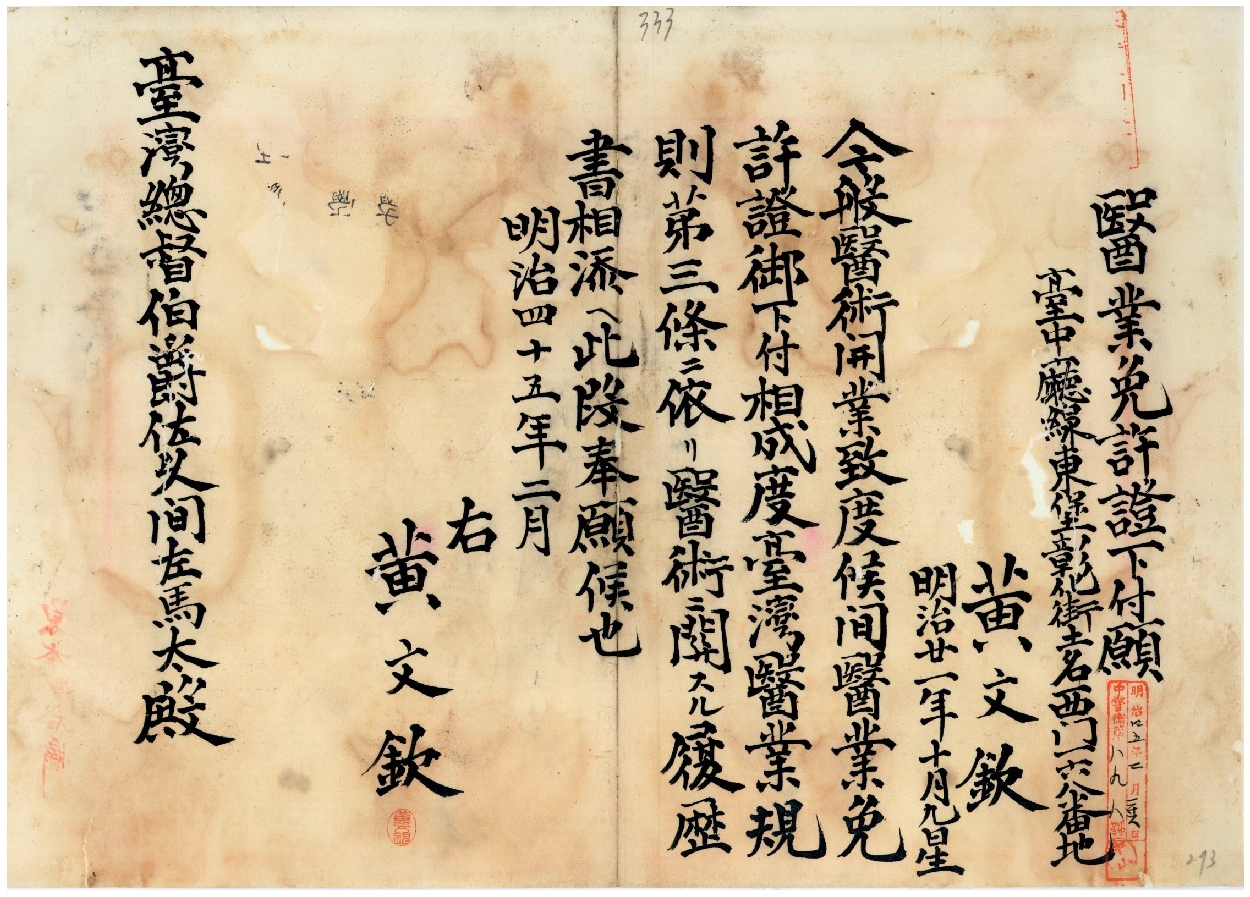 333
醫業免許證下付願
臺中廳線東堡彰化街土名西門一六八番地
黄文欽
明治廿一年十月九日生
今般醫術開業致度候间醫業免
許證御下付相成度臺灣醫業規
則第三條ニ依リ醫術ニ関スル履歴
書相添ヘ此段奉願候也
明治四十五年二月
右
黄文欽
臺灣總督伯爵佐久间左馬太殿
293